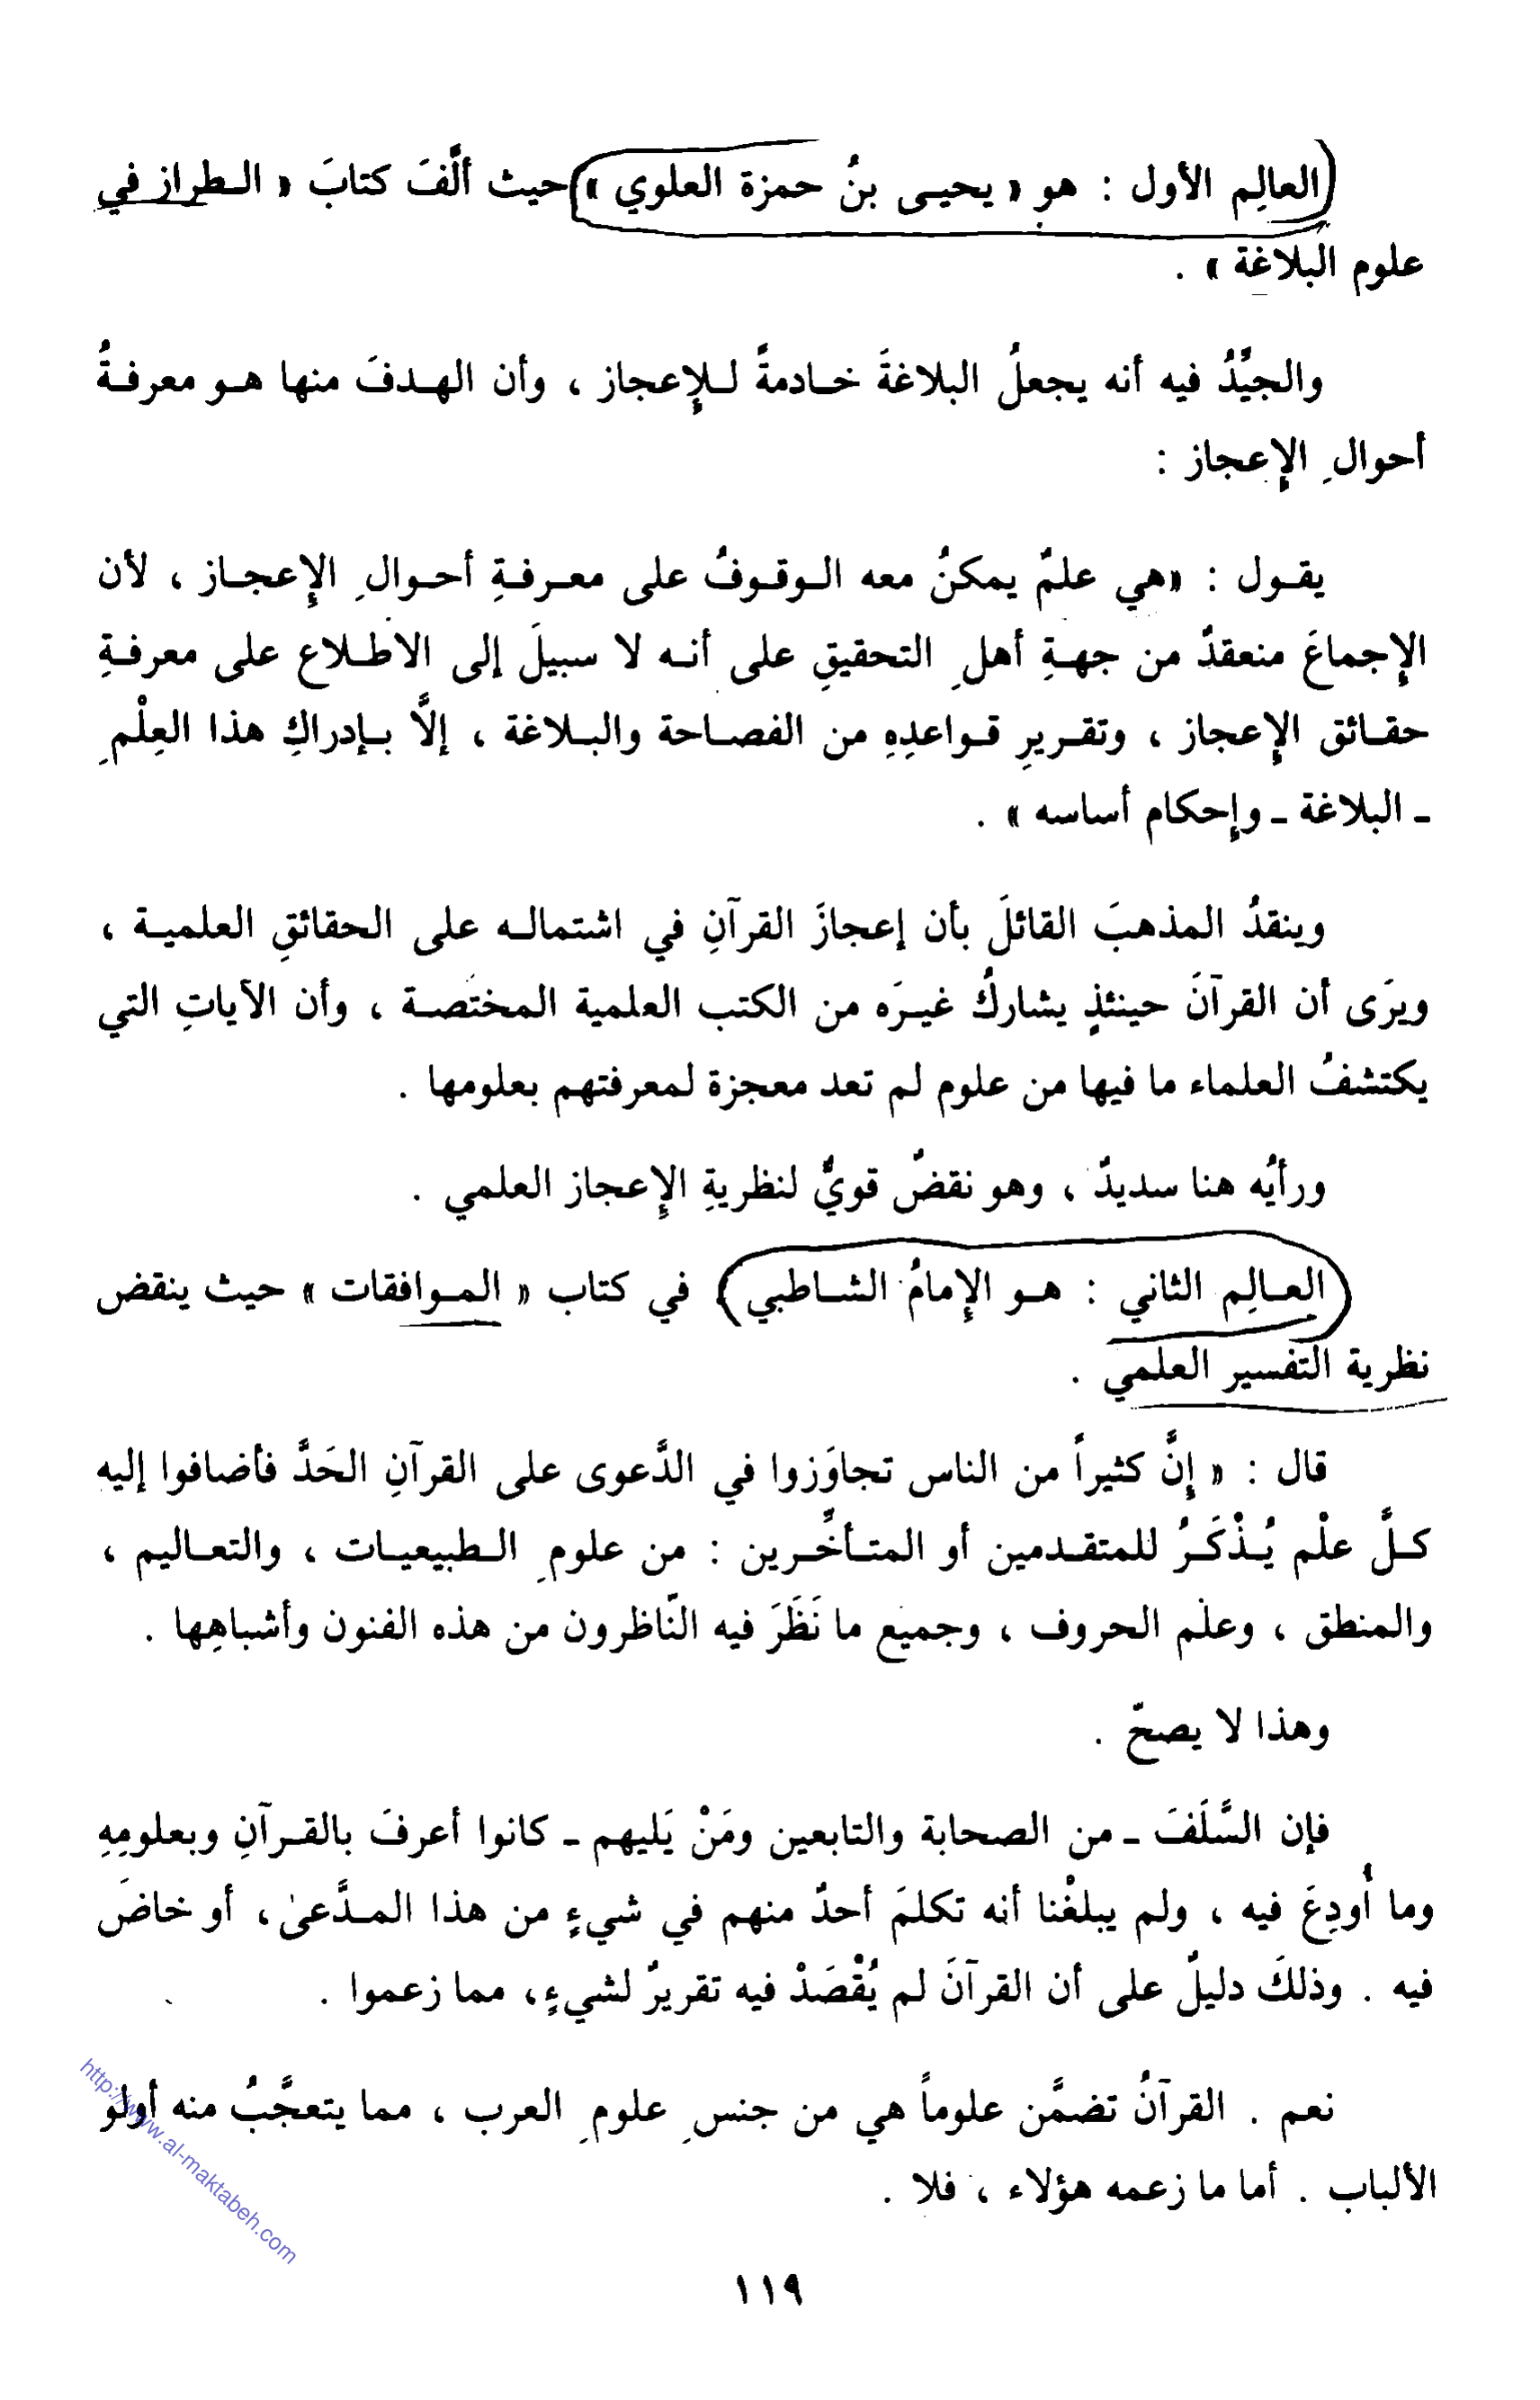 العالِم الأول : هو « يحيـى بنُ حمزة العلوي » حيث ألَّفَ كتابَ « الـطراز في
علوم البلاغة » .
والجيِّدُ فيه أنه يجعلُ البلاغةَ خـادمةً لـلإِعجاز ، وأن الهـدفَ منها هـو معرفـةُ
أحوالِ الإِعجاز :
يقـول : «هي علمٌ يمكنُ معه الـوقـوفُ على معـرفـةِ أحـوالِ الإِعجـاز ، لأن
الإِجماعَ منعقدٌ من جهـةِ أهلِ التحقيقِ على أنـه لا سبيلَ إلى الاطـلاع على معرفـةِ
حقـائق الإِعجاز ، وتقـريرِ قـواعدِهِ من الفصـاحة والبـلاغة ، إلَّا بـإدراكِ هذا العِلْمِ
ـ البلاغة ـ وإحكام أساسه » .
وينقدُ المذهبَ القائلَ بأن إعجازَ القرآنِ في اشتمالـه على الحقائقِ العلميـة ،
ويرَى أن القرآنَ حينئذٍ يشاركُ غيـرَه من الكتب العلمية المختصـة ، وأن الآياتِ التي
يكتشفُ العلماء ما فيها من علوم لم تعد معجزة لمعرفتهم بعلومها .
ورأيُه هنا سديدٌ ، وهو نقضٌ قويٌّ لنظريةِ الإِعجاز العلمي .
العـالِم الثاني : هـو الإِمامُ الشـاطبي في كتاب « المـوافقات » حيث ينقض
نظرية التفسير العلمي .
قال : « إنَّ كثيراً من الناس تجاوَزوا في الدَّعوى على القرآنِ الحَدَّ فأضافوا إليه
كـلَّ علْم يُـذْكَـرُ للمتقـدمين أو المتـأخِّـرين : من علومِ الـطبيعيـات ، والتعـاليم ،
والمنطق ، وعلْم الحروف ، وجميع ما نَظَرَ فيه النّاظرون من هذه الفنون وأشباهِها .
وهذا لا يصحّ .
فإن السَّلَفَ ـ من الصحابة والتابعين ومَنْ يَليهم ـ كانوا أعرفَ بالقـرآنِ وبعلومِهِ
وما أُودِعَ فيه ، ولم يبلغْنا أنه تكلمَ أحدٌ منهم في شيءٍ من هذا المـدَّعىٰ ، أو خاضَ
فيه . وذلكَ دليلٌ على أن القرآنَ لم يُقْصَدْ فيه تقريرٌ لشيءٍ ، مما زعموا .
نعم . القرآنُ تضمَّن علوماً هي من جنسِ علومِ العرب ، مما يتعجَّبُ منه أولو
الألباب . أما ما زعمه هؤلاء ، فلا .
١١٩
http://www.al-maktabeh.com